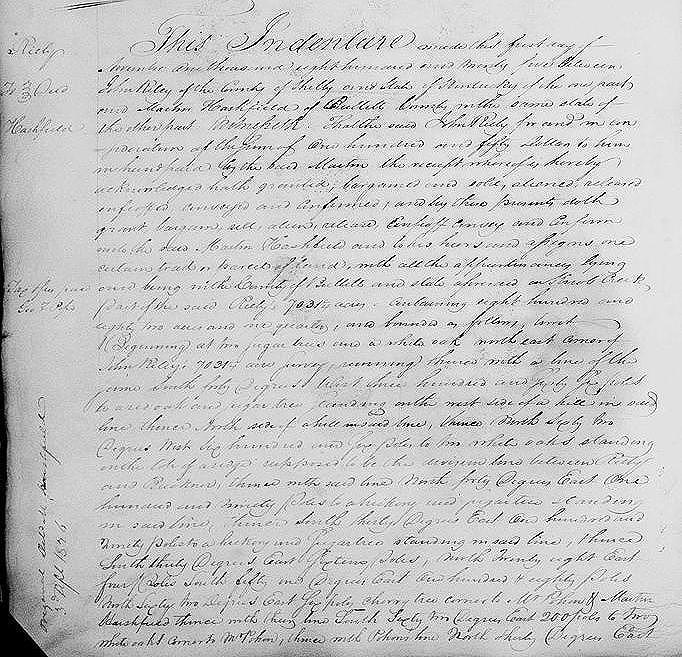 Riely
To Deed
Hashfield
This Indenture made this first day of
one thousand eight hundred and twenty five between
John Riley of the County of Shelby and State of Kentucky of the one part
and Martin Hashfield of Bullitt County in the same state of
the other part Witnesseth. That the said John Riely for and in con
sideration of the sum of One hundred and fifty Dollars to him
in hand paid by the said Martin the receipt whereof is hereby
acknowledged hath granted, bargained and sold, aliened, released
enfeoffed conveyed and confirmed, and by these presents doth
grant bargain, sell, alien, release, enfeoff convey and confirm
unto the said Martin Hashfield and to his heirs and assigns one
certain tract or parcel of land, with all the appurtenances lying
and being in the County of Bullitt and state aforesaid on
part of the said Riely's 7031½ acres. Containing eight hundred and
eighty two acres and one quarter, and bounded as follows, towit
Beginning at two sugar trees and a white oak north east corner of
John Riley's 7031½ acre survey, running thence with a line of the
same South forty Degrees West three hundred and sixty six poles
to a red oak and sugar tree, standing on the west side of a hill in said
line thence North side of a hill in said line, thence North Sixty two
Degrees West Six hundred and Six poles to two white oaks standing
on the side of a ridge supposed to be the division line between Riely
and Buckner, thence with said line North forty Degrees East One
hundred and ninety poles to a hickory and sugar tree standing
in said line, thence South thirty Degrees East One hundred and
ninety poles to a hickory and sugar tree standing in said line, thence
South thirty Degrees East Sixteen poles, North Twenty eight East
four poles South fifty two Degrees East One hundred & eighty poles
North Sixty two Degrees East Six poles cherry tree corner to & Martin
Hashfield thence with their line South Sixty two Degrees East 200 poles to two
white oaks corner to thence with line North thirty Degrees East
Tax &c paid
Original delivd
3 Apl 1836